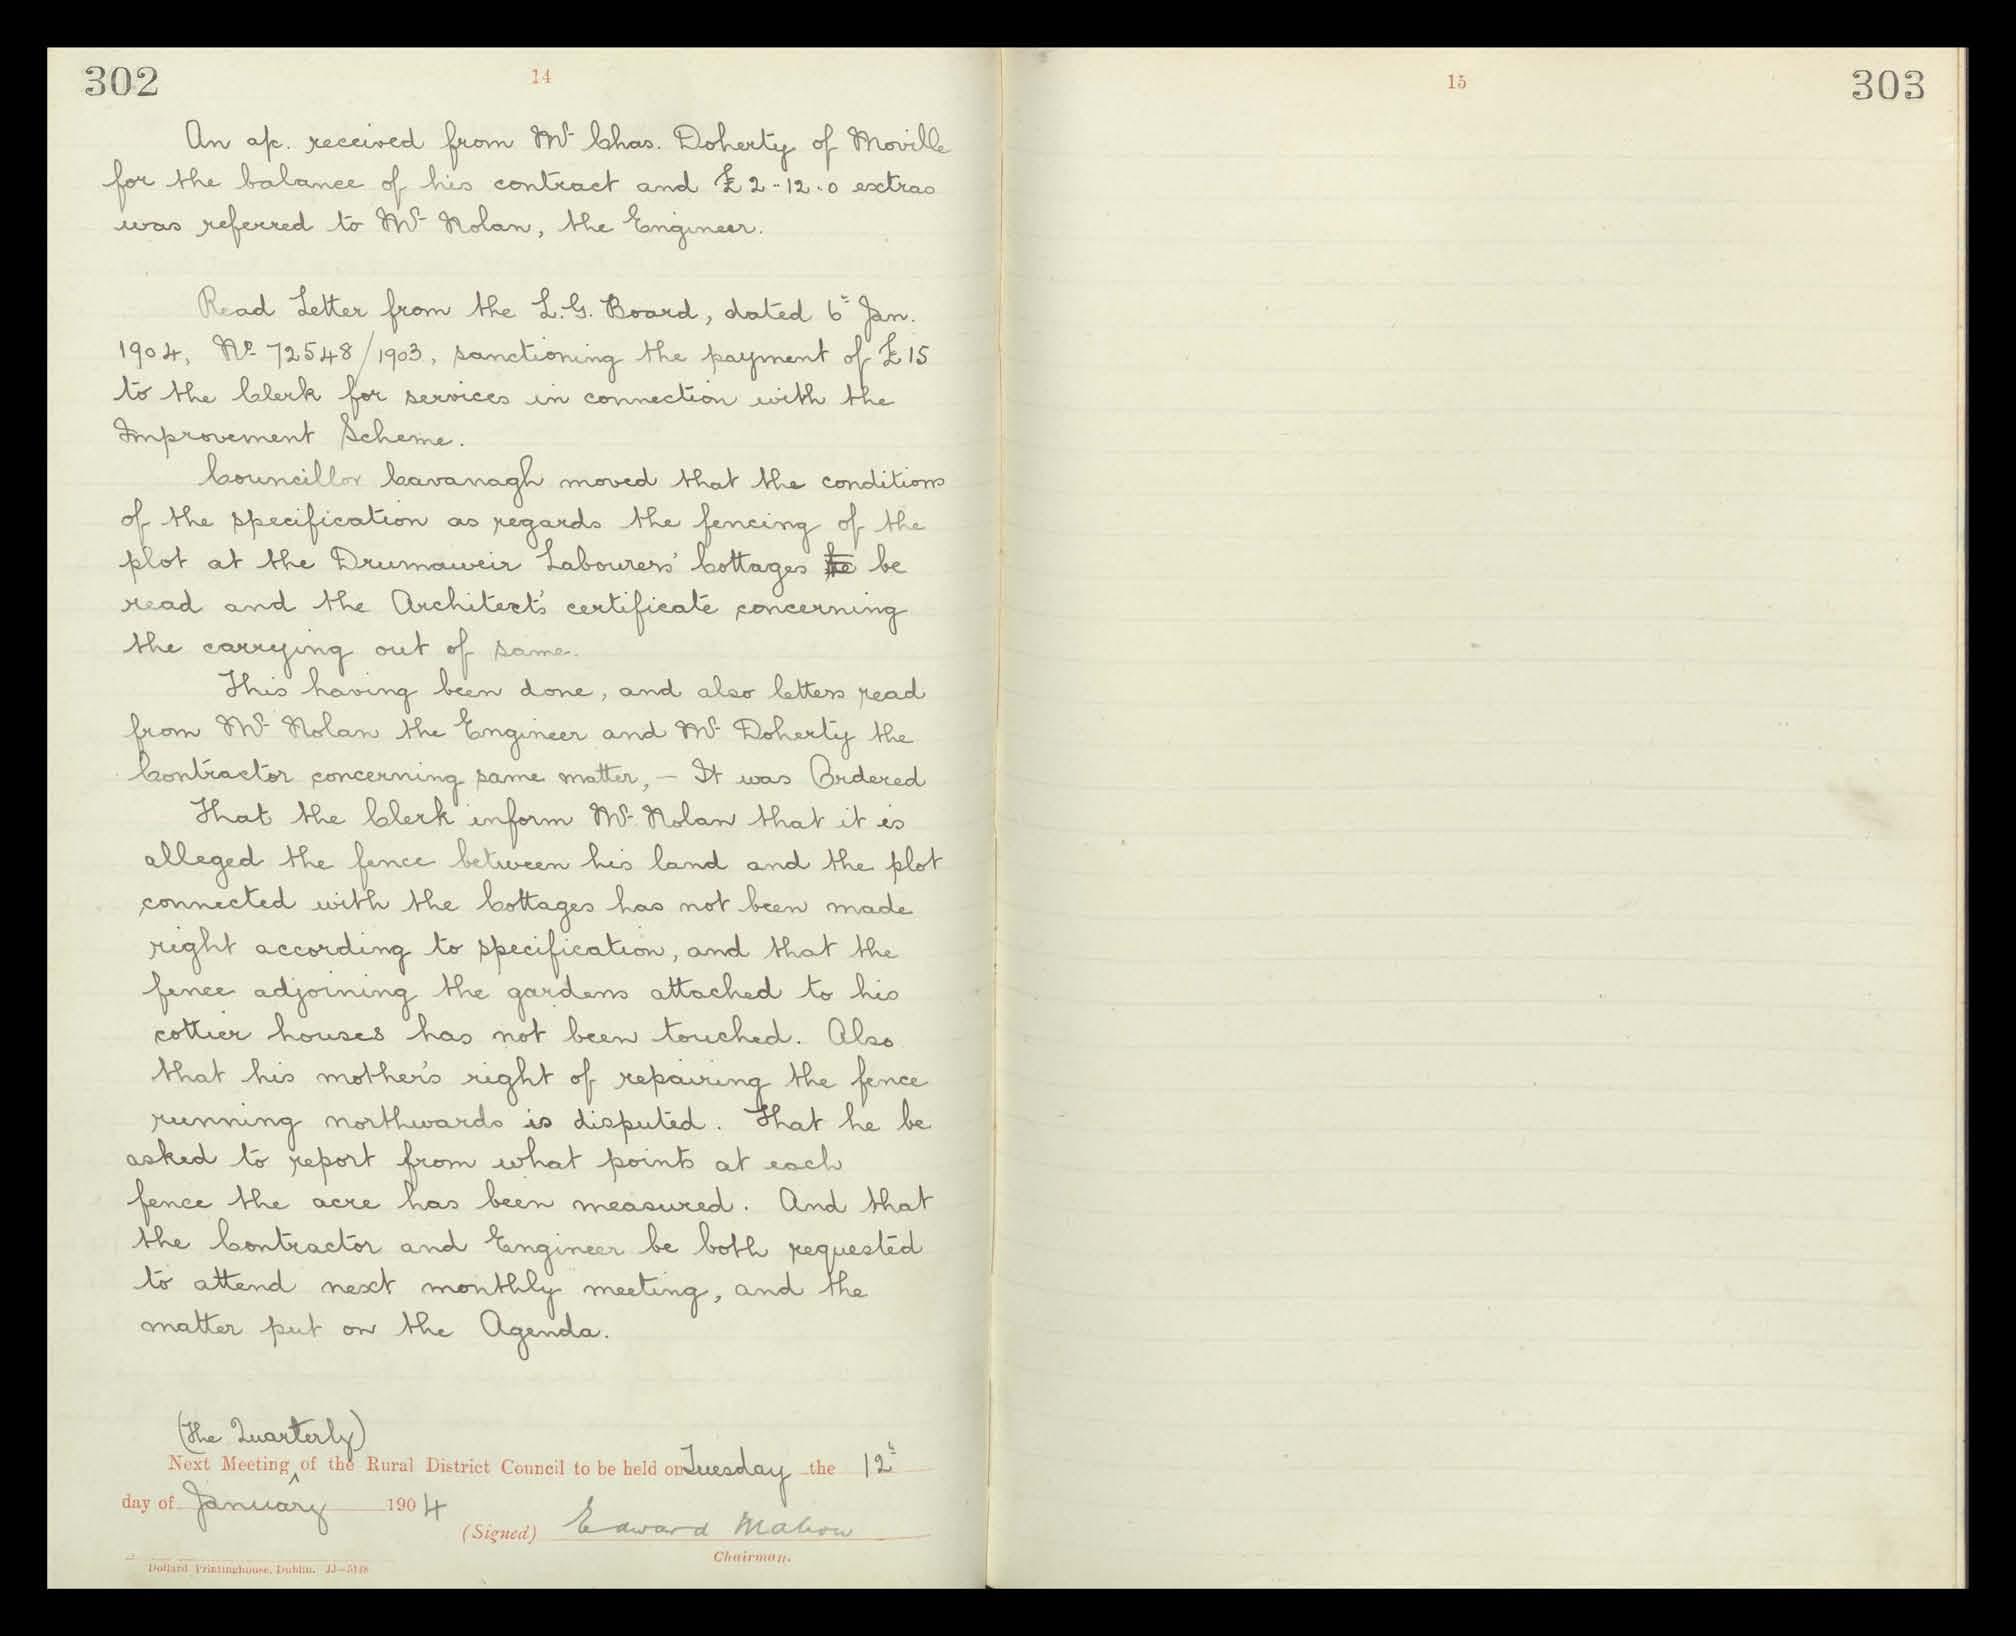 302
14
An a/c. received from Mr Chas. Doherty of Moville
for the balance of his contract and £2-12-0 extras
was referred to Mr Nolan, the Engineer.
Read Letter from the L.G. Board, dated 6th Jan.
1904, No 72548/1903, sanctioning the payment of £15
to the Clerk for services in connection with the
Improvement Scheme.
Councillor Cavanagh moved that the conditions
of the specification as regards the fencing of the
plot at the Drumaweir Labourers' Cottages be
read and the Architect's certificate concerning
the carrying out of same.
This having been done, and also letters read
from Mr Nolan the Engineer and Mr Doherty the
Contractor concerning same matter, - It was Ordered
That the Clerk inform Mr Nolan that it is
alleged the fence between his land and the plot
connected with the Cottages has not been made
right according to specification, and that the
fence adjoining the gardens attached to his
cottier houses has not been touched. Also
that his mother's right of repairing the fence
running northwards is disputed. That he be
asked to report from what points at each
fence the acre has been measured. And that
the Contractor and Engineer be both requested
to attend next monthly meeting, and the
matter put on the Agenda.
(The Quarterly)
Next Meeting of the Rural District Council to be held on Tuesday the 12th
day of January 1904
(Signed) Edward Mahon
Chairman.
Dollard Printinghouse, Dublin. JJ-5148
15
303